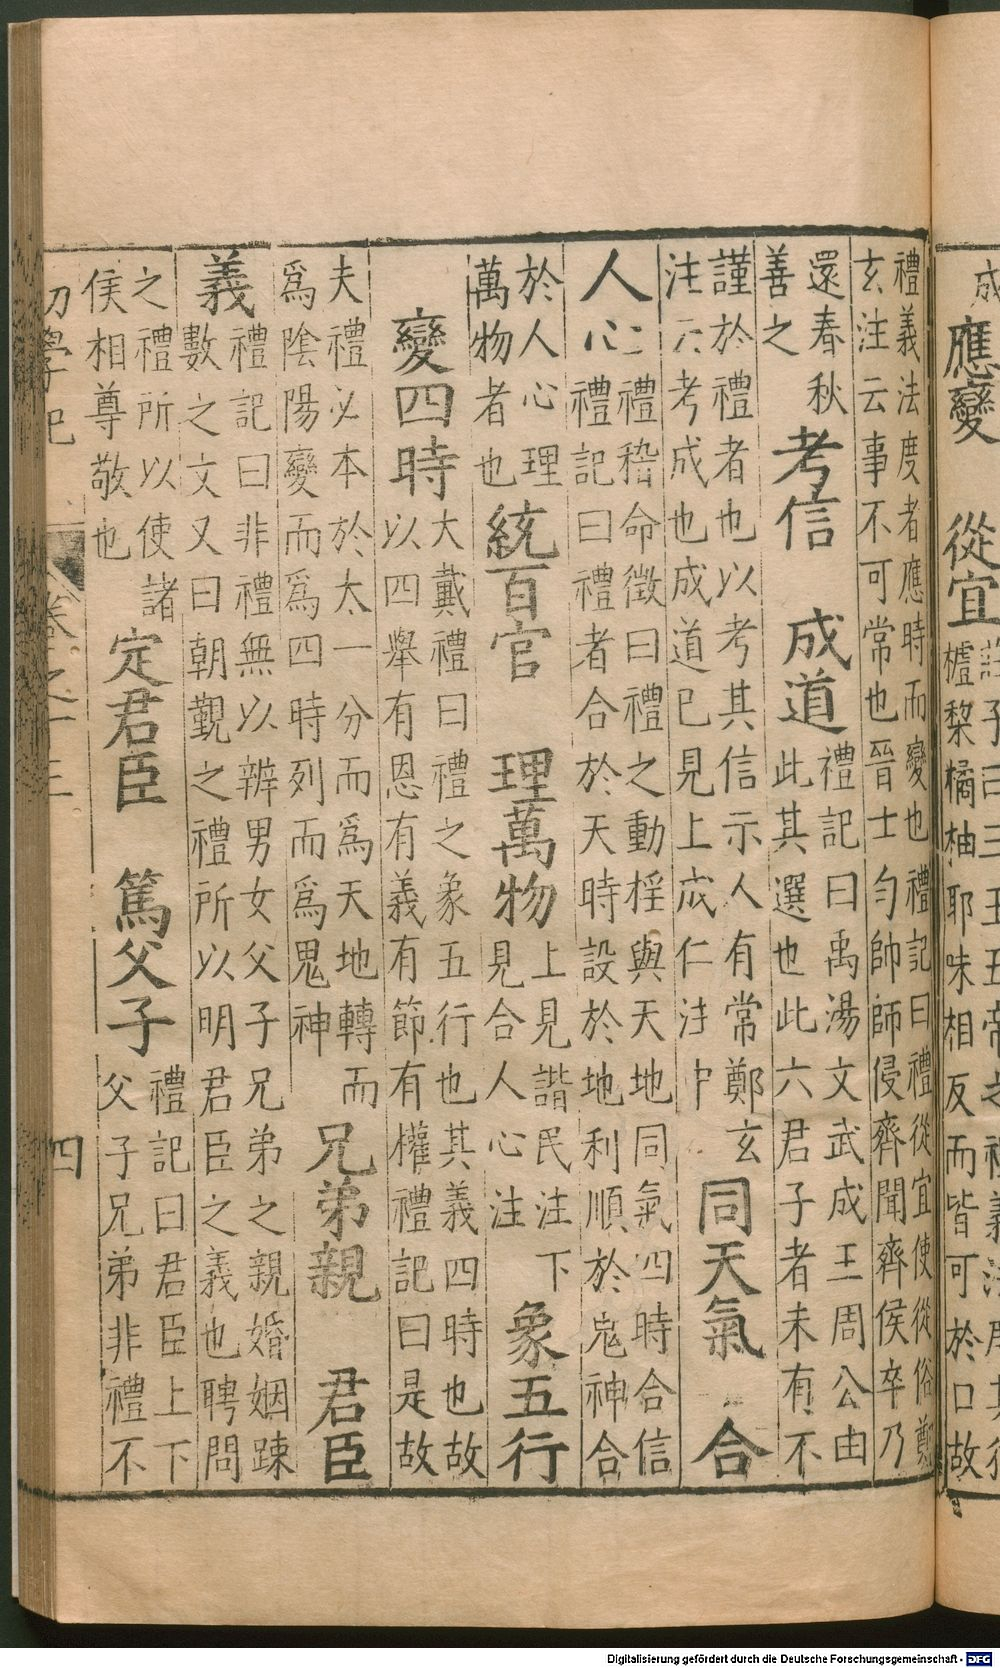 應變
從宜
櫨棃橘柚耶味相反而皆可於口故
禮義法度者應時而變也禮記曰禮從宜使從俗鄭
玄注云事不可常也晉士匄帥師侵齊聞齊侯卒乃
還春秋
善之
考信
成道
禮記曰禹湯文武成王周公由
此其選也此六君子者未有不
謹於禮者也以考其信示人有常鄭玄
注云考成也成道已見上成仁注中
同天氣
合
人心
禮稽命徵曰禮之動樞與天地同氣四時合信
禮記曰禮者合於天時設於地利順於鬼神合
於人心理
萬物者也
統百官
理萬物
上見諧民注下
見合人心注
象五行
變四時
大戴禮曰禮之象五行也其義四時也故
以四舉有恩有義有節有權禮記曰是故
夫禮必本於太一分而為天地轉而
爲陰陽變而爲四時列而爲鬼神
兄弟親
君臣
義
禮記曰非禮無以辨男女父子兄弟之親婚姻踈
數之文又曰朝覲之禮所以明君臣之義也聘問
之禮所以使諸
侯相尊敬也
定君臣
篤父子
禮記曰君臣上下
父子兄弟非禮不
初學記
卷之十三
四
Digitalisierung gefördert durch die Deutsche Forschungsgemeinschaft - DFG